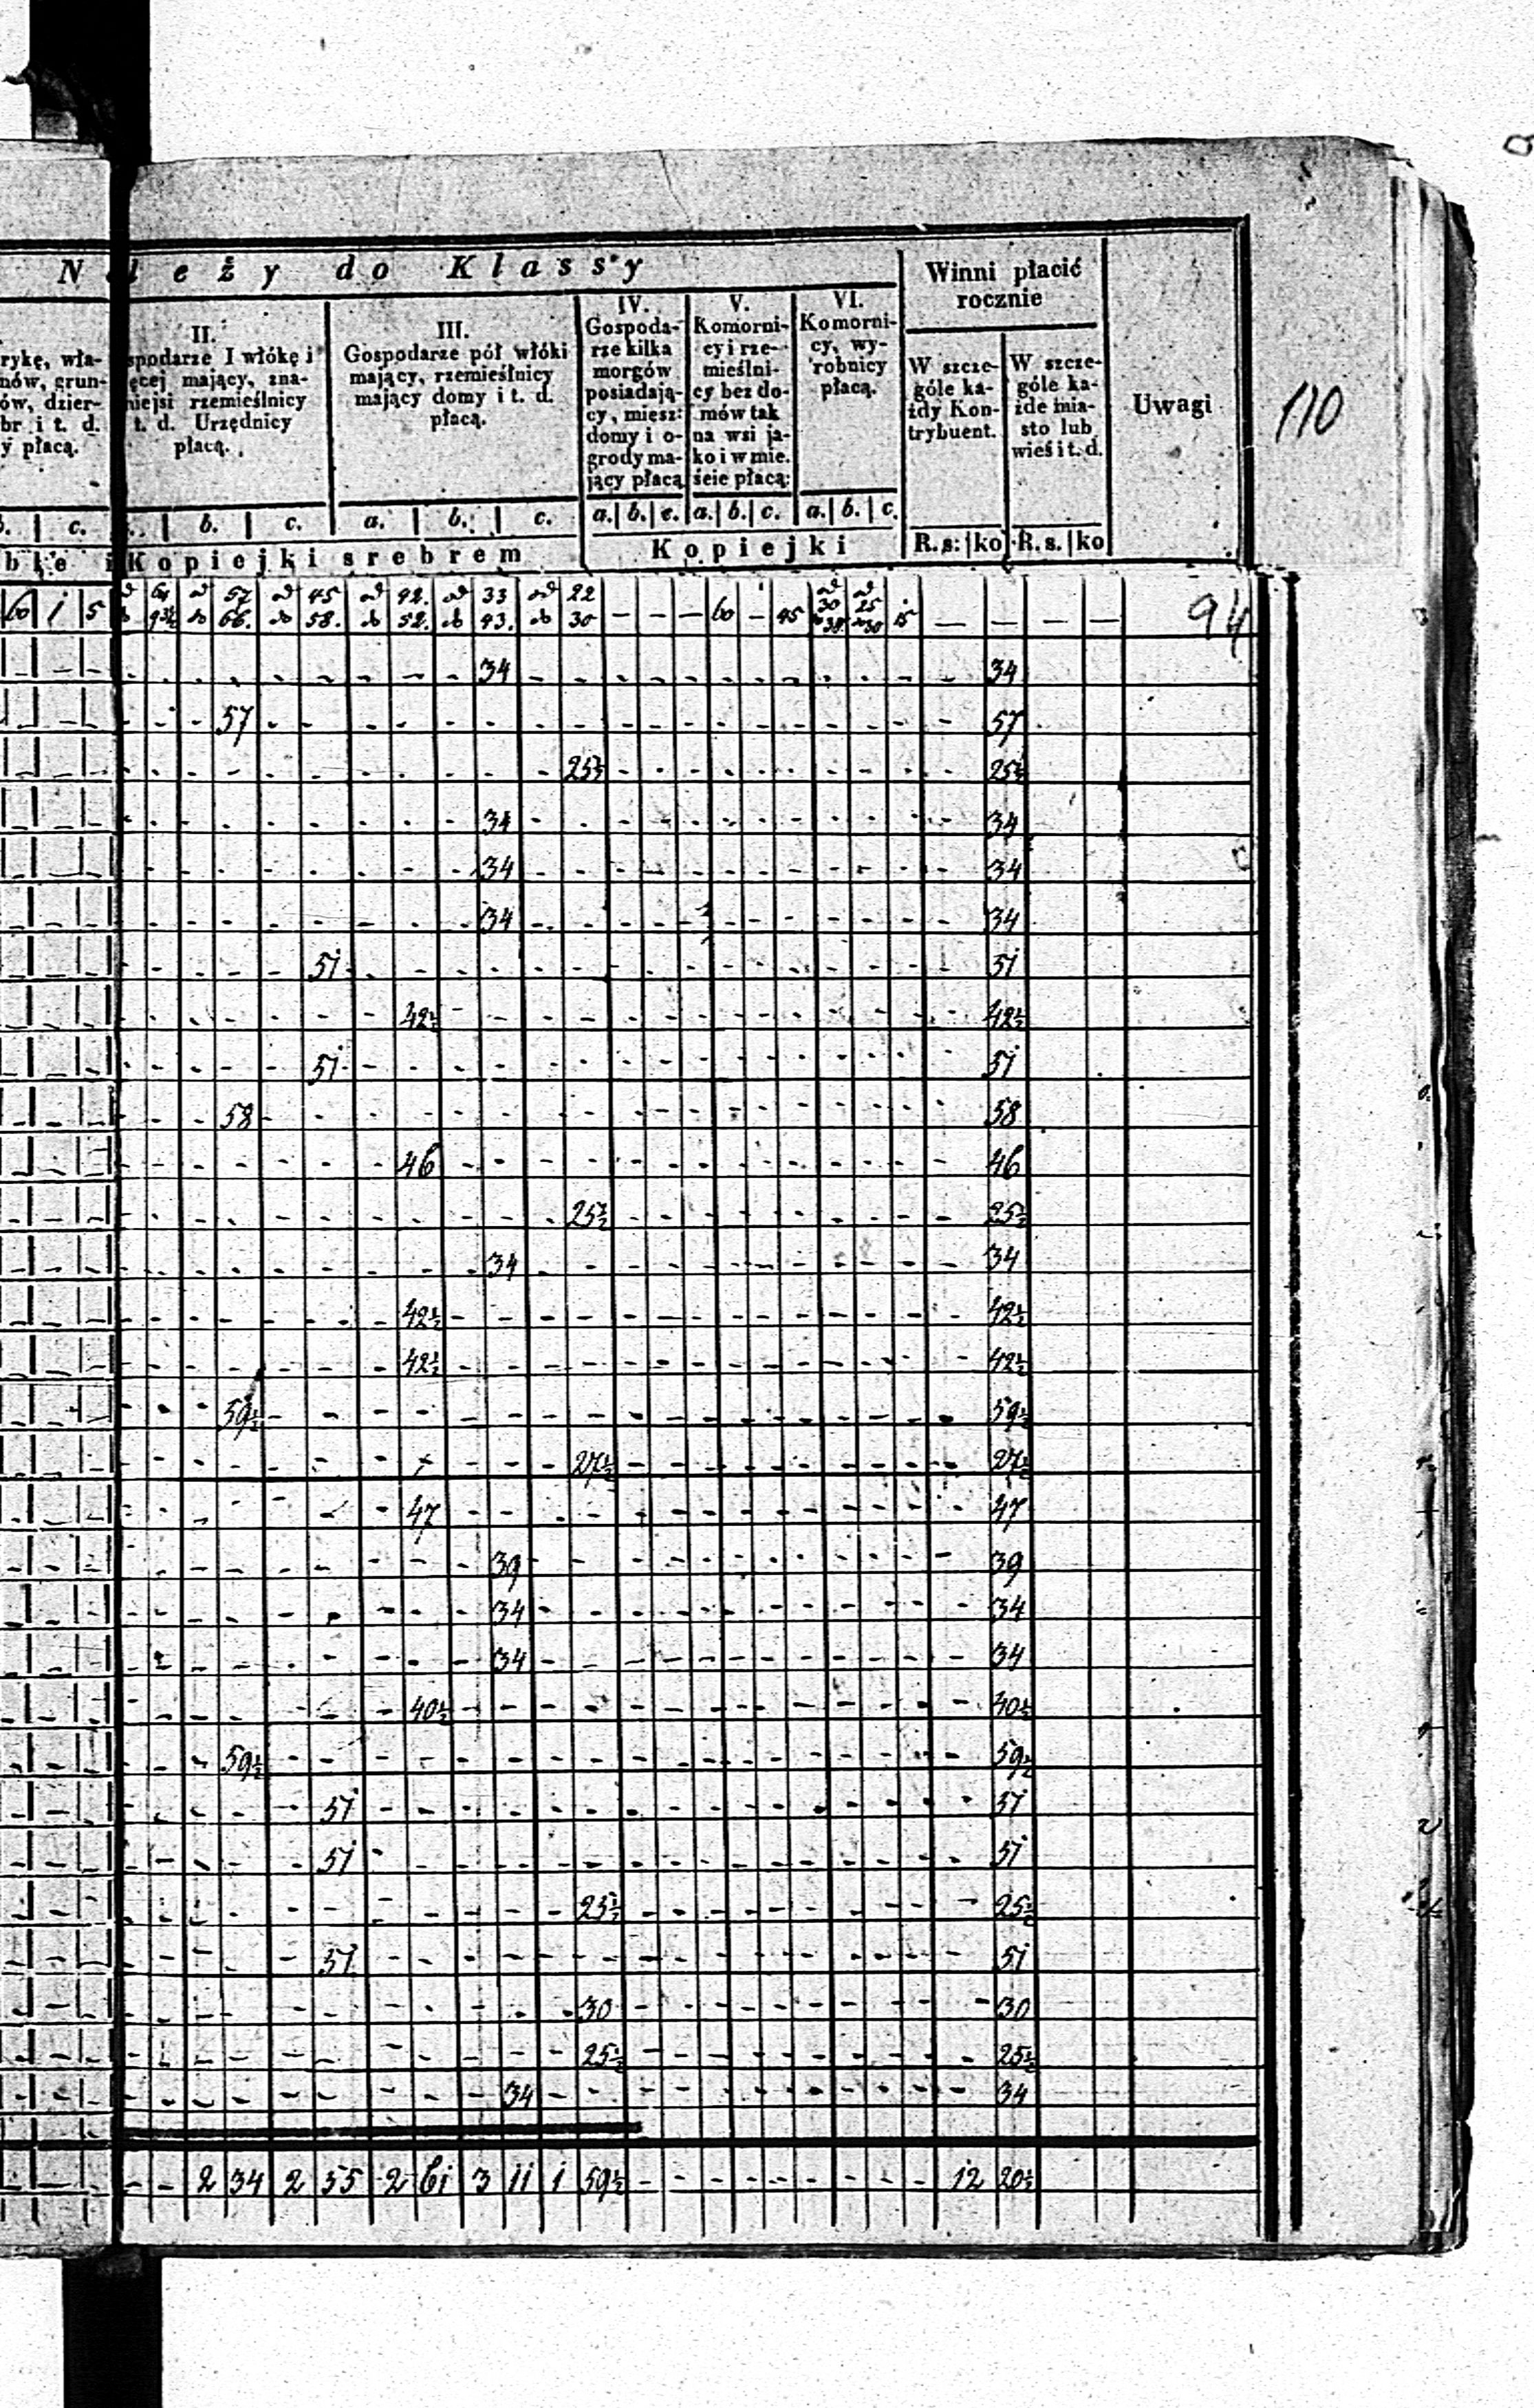 Należy do Klassy
Winni płacić
rocznie
Uwagi
110
rykę, wła-
nów, grun-
ów, dzier-
br. i t. d.
y płacą.
II.
spodarze I włókę i
ęcej mający, zna-
niejsi rzemieślnicy
t. d. Urzędnicy
płacą.
III.
Gospodarze pół włóki
mający, rzemieślnicy
mający domy i t. d.
płacą.
IV.
Gospoda-
rze kilka
morgów
posiadają-
cy, miesz:
domy i o-
grody ma-
jący płacą
V.
Komorni-
cy i rze-
mieślni-
cy bez do-
mów tak
na wsi ja-
ko i w mie.
ście płacą:
VI.
Komorni-
cy, wy-
robnicy
płacą.
W szcze-
góle ka-
żdy Kon-
trybuent.
W szcze-
góle ka-
żde mia-
sto lub
wieś i t. d.
b. c. a. b. c. a. b. c. a. b. c. a. b. c. a. b. c.
ble i Kopiejki srebrem Kopiejki R. s: ko R. s. ko
60 1 5 od 57 od 45 od 42. od 33 od 22 — — — 60 — 45 od 30 od 25 15 — — — — 94
do 93½ do 66. do 58. do 52. do 43. do 30 do 38 do 30
34 34
57 57
25½ 25½
34 34
34 34
34 34
51 51
42½ 42½
51 51
58 58
46 46
25½ 25½
34 34
42½ 42½
42½ 42½
59½ 59½
27½ 27½
47 47
39 39
34 34
34 34
40½ 40½
59½ 59½
51 51
51 51
25½ 25½
51 51
30 30
25½ 25½
34 34
2 34 2 55 2 61 3 11 1 59½ 12 20½